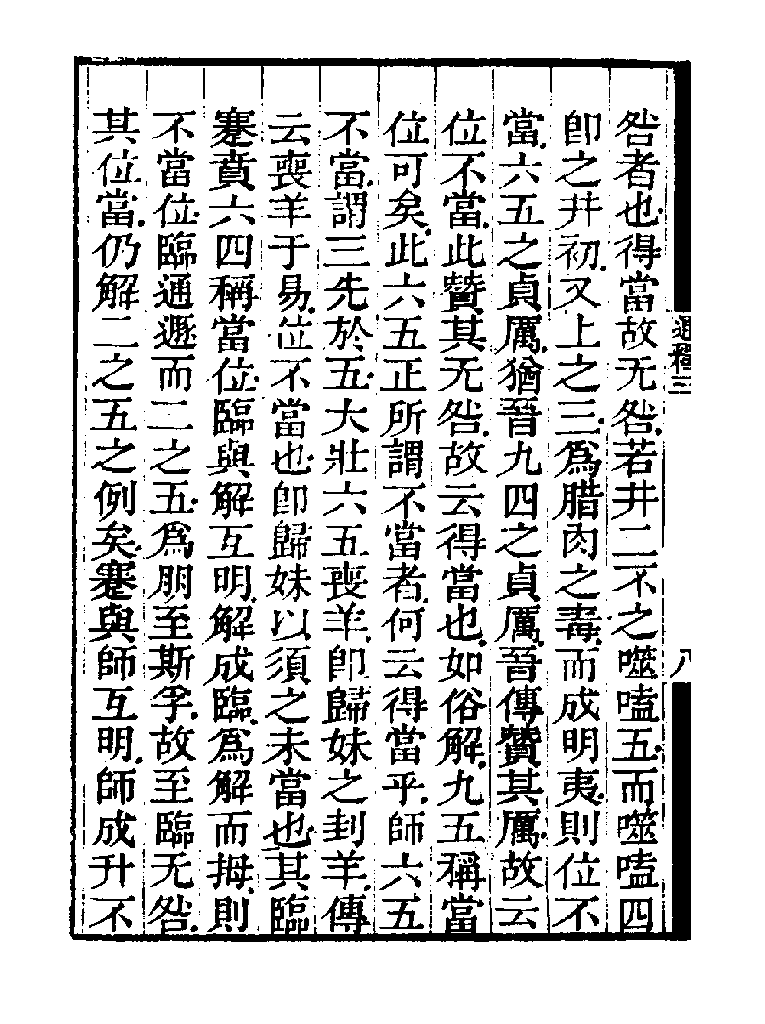 咎者也得當故无咎若井二不之噬嗑五而噬嗑四
卽之井初又上之三爲腊肉之毒而成明夷則位不
當六五之貞厲猶晉九四之貞厲晉傳贊其厲故云
位不當此贊其无咎故云得當也如俗解九五稱當
位可矣此六五正所謂不當者何云得當乎師六五
不當謂三先於五大壯六五喪羊卽歸妹之刲羊傳
云喪羊于易位不當也卽歸妹以須之未當也其臨
蹇賁六四稱當位臨與解互明解成臨爲解而拇則
不當位臨通遯而二之五爲朋至斯孚故至臨无咎
其位當仍解二之五之例矣蹇與師互明師成升不
通釋三
八